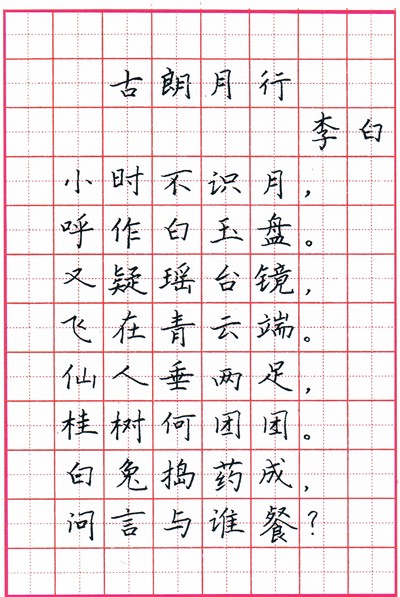 古朗月行
李白
小时不识月，
呼作白玉盘。
又疑瑶台镜，
飞在青云端。
仙人垂两足，
桂树何团团。
白兔捣药成，
问言与谁餐？